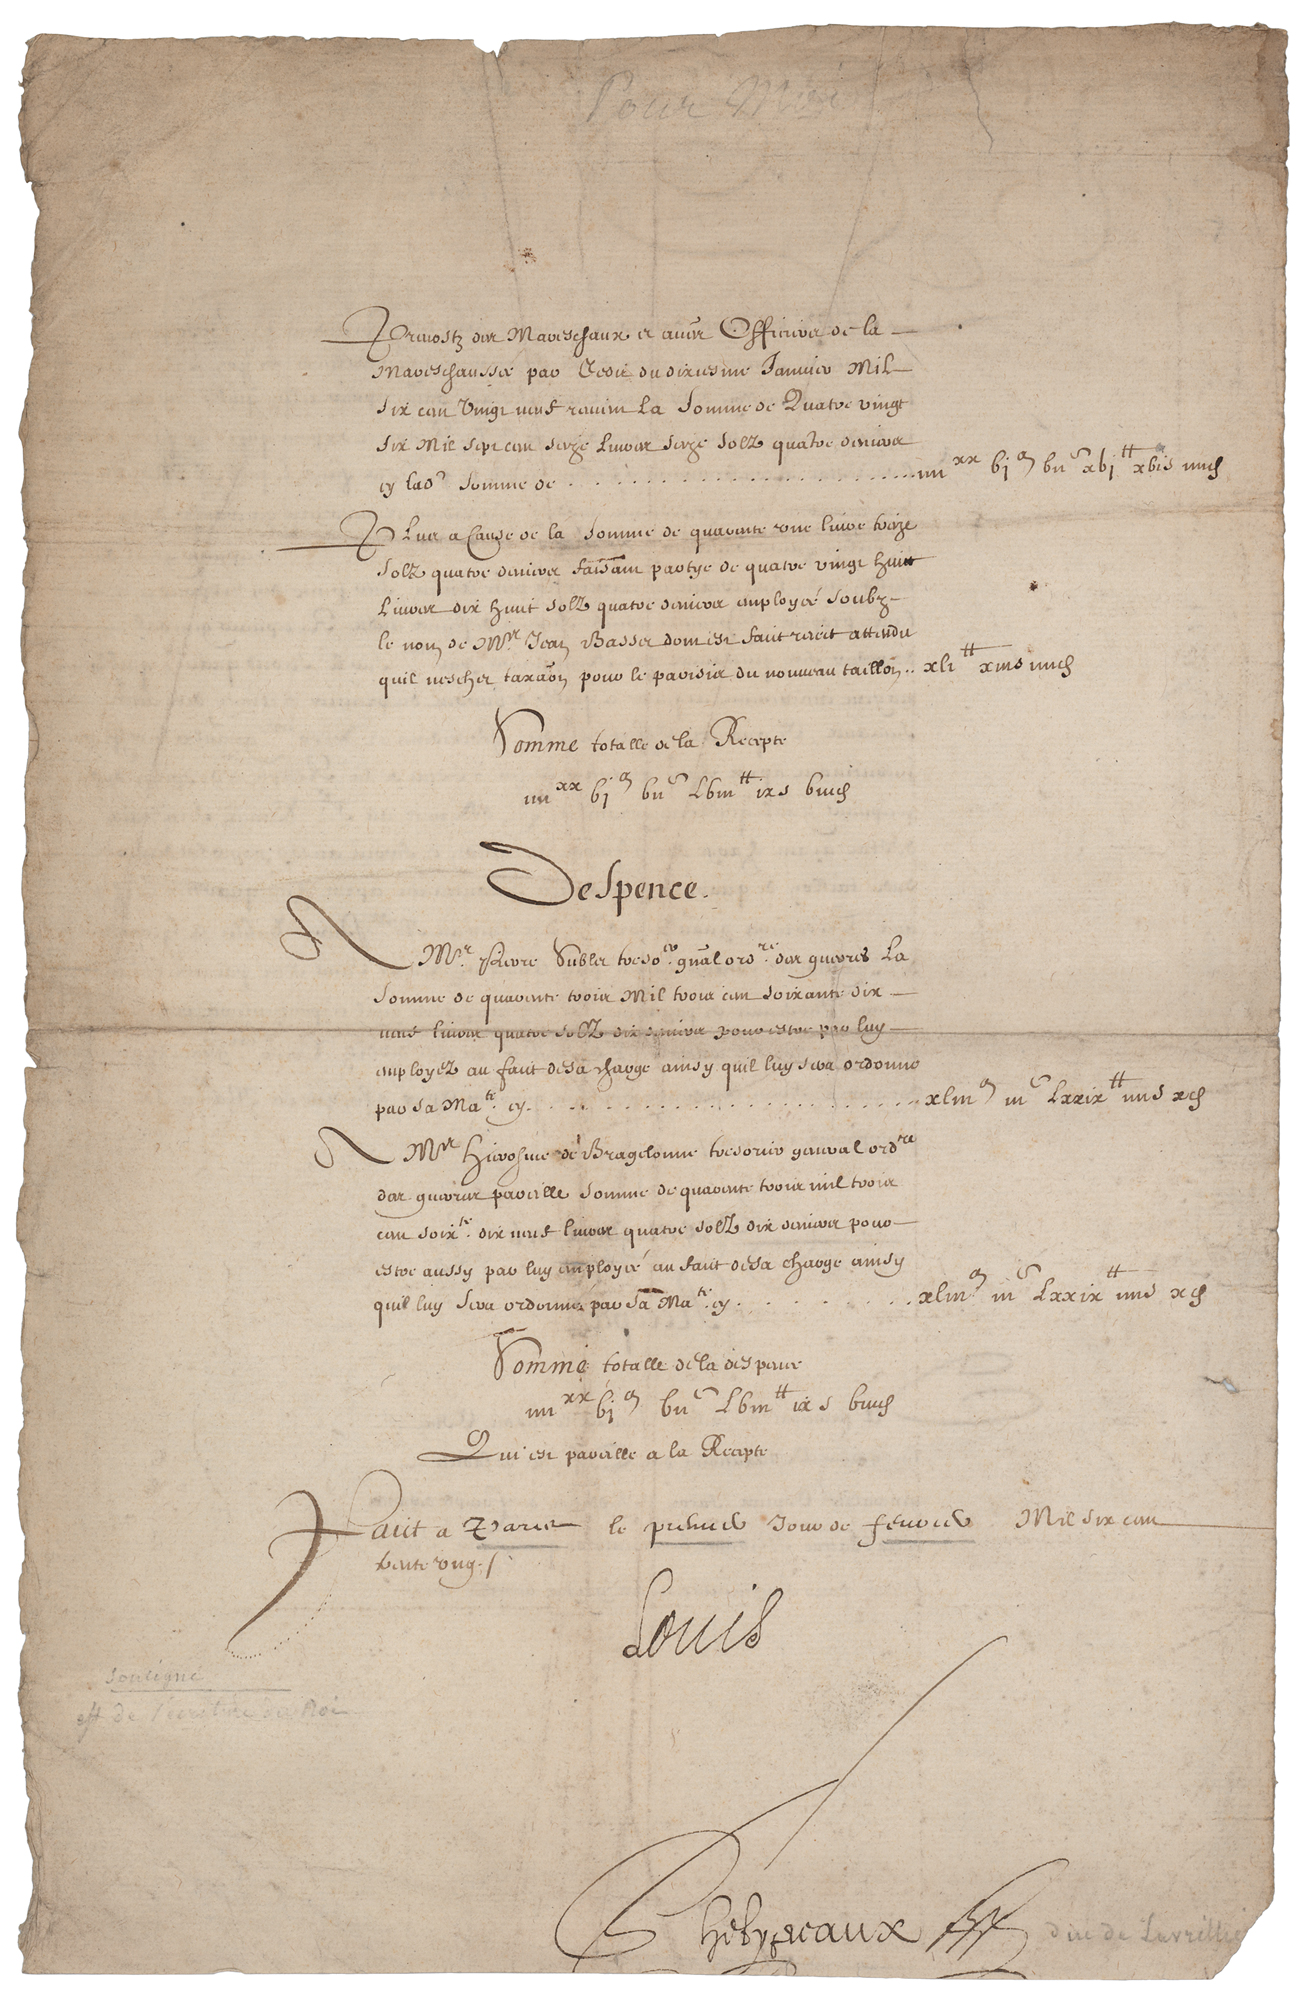 Pour Moi
Prevostz des Mareschaux et autres Officiers de la
Mareschaussée par Edit du dixiesme Janvier Mil
six cens vingt neuf revient la somme de Quatre vingt
six Mil sept cens seize livres seize solz quatre deniers
cy lad. somme de . . . . . . . . . . iiii xx vj m vii c xvj tt xvi s iiii d
Plus a cause de la somme de quarente une livre treize
solz quatre deniers faisant partye de quatre vingt huict
livres dix huit solz quatre deniers employée soubz
le nom de Mre Jean Basset dont est faict recept attendu
quil neschet taxaon pour le parisis du nouveau taillon .. xli tt xiii s iiii d
Somme totalle de la Recepte
iiii xx vj m vii c Lviii tt ix s viii d
Despence.
A Mre Pierre Sublet treso.er gnal ord.re des guerres la
somme de quarente trois Mil trois cens soixante dix
neuf livres quatre solz dix deniers pour estre par luy
employez au faict de sa charge ainsy quil luy sera ordonné
par sa Ma.té cy . . . . . . . . . . xliii m iii c Lxxix tt iiii s x d
A Mre Hierosme de Bragelonne tresorier general ord.re
des guerres pareille somme de quarente trois mil trois
cens soix.te dix neuf livres quatre solz dix deniers pour
estre aussy par luy employée au faict de sa charge ainsy
quil luy sera ordonné par sa Ma.té cy . . . . . . xliii m iii c Lxxix tt iiii s x d
Somme totalle de la despence
iiii xx vj m vii c Lviii tt ix s viii d
Qui est pareille a la Recepte
Faict a Paris le premier Jour de febvrier Mil six cens
trente ung ./.
Louis
souligné
est de l'écriture du Roi
Phelypeaux
duc de Lavrilliere